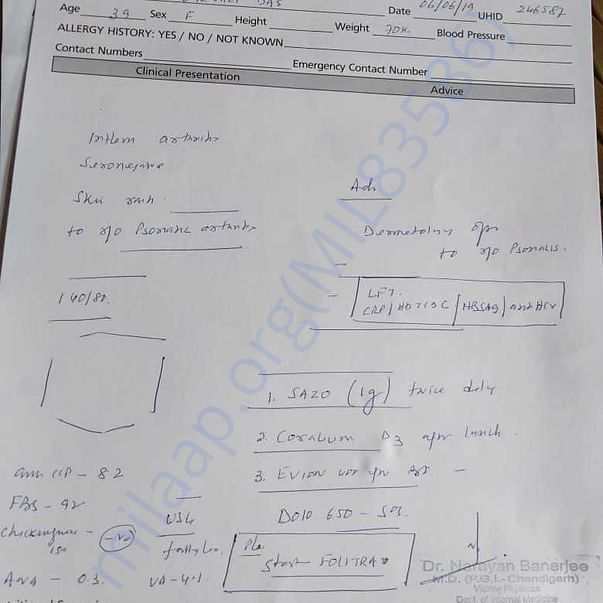 DAS
Age 39 Sex F Height Weight 70K Date 06/06/19 UHID 246587
Blood Pressure
ALLERGY HISTORY: YES / NO / NOT KNOWN
Contact Numbers Emergency Contact Number
Clinical Presentation Advice
Skin rash
to r/o Psoriatic arthritis
140/80
Adv
Dermatology opn
to r/o Psoriasis.
LFT.
CRP/ /HBSAG/anti HCV
1. SAZO (1g) twice daily
2. Coralium D3 after lunch
3. Evion
DOLO 650 - SOS.
Pla
Start FOLITRAX
anti CCP - 82
FBS - 92
Chickungunea - -ve
ANA - 03.
USG
fatty liver
UA-4.1
milaap.org(MIL835367)
Dr. Narayan Banerjee
M.D. (P.G.I.-Chandigarh)
Visiting Physician
Dept. of Internal Medicine